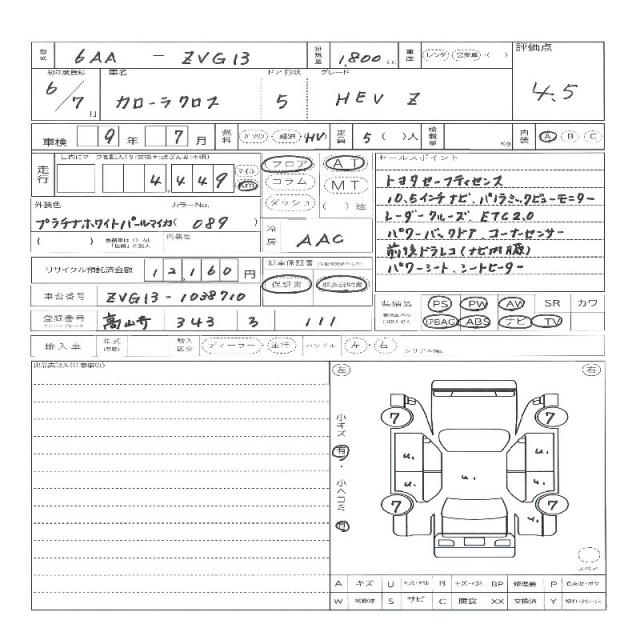 型式 6AA - ZVG13 排気量 1,800 cc 車歴 レンタ 自家用 ( ) 評価点
初年度登録 車名 ドア形状 グレード
6/7月 カローラクロス 5 HEV Z 4.5
車検 9年 7月 燃料 ガソリン 軽油 HV 定員 5( )人 積載量 Kg 内装 A B C
走行 4,449 マイル Km フロア コラム ダッシュ AT MT ( )速
セールスポイント
トヨタセーフティセンス
10.5インチナビ、パノラミックビューモニター
レーダークルーズ、ETC2.0
パワーバックドア、コーナーセンサー
前後ドラレコ(ナビ内蔵)
パワーシート、シートヒーター
外装色 カラーNo.
プラチナホワイトパールマイカ( 089 )
( ) 内装色
冷房 AAC
リサイクル預託済金額 12,160円
保証書 取扱説明書
車台番号 ZVG13-1038710
装備品 PS PW AW SR カワ
PBAG ABS ナビ TV
登録番号 343 111
輸入車 年式 輸入区分 ディーラー 並行 ハンドル 左・右 シリアルNo.
左 右
小キズ 有・小ヘコミ 有
7 7
u. u.
u. u. u.
7 7
u.
スペア
A キズ U B BP 修理跡 P
W S サビ C 腐食 XX 交換済 Y